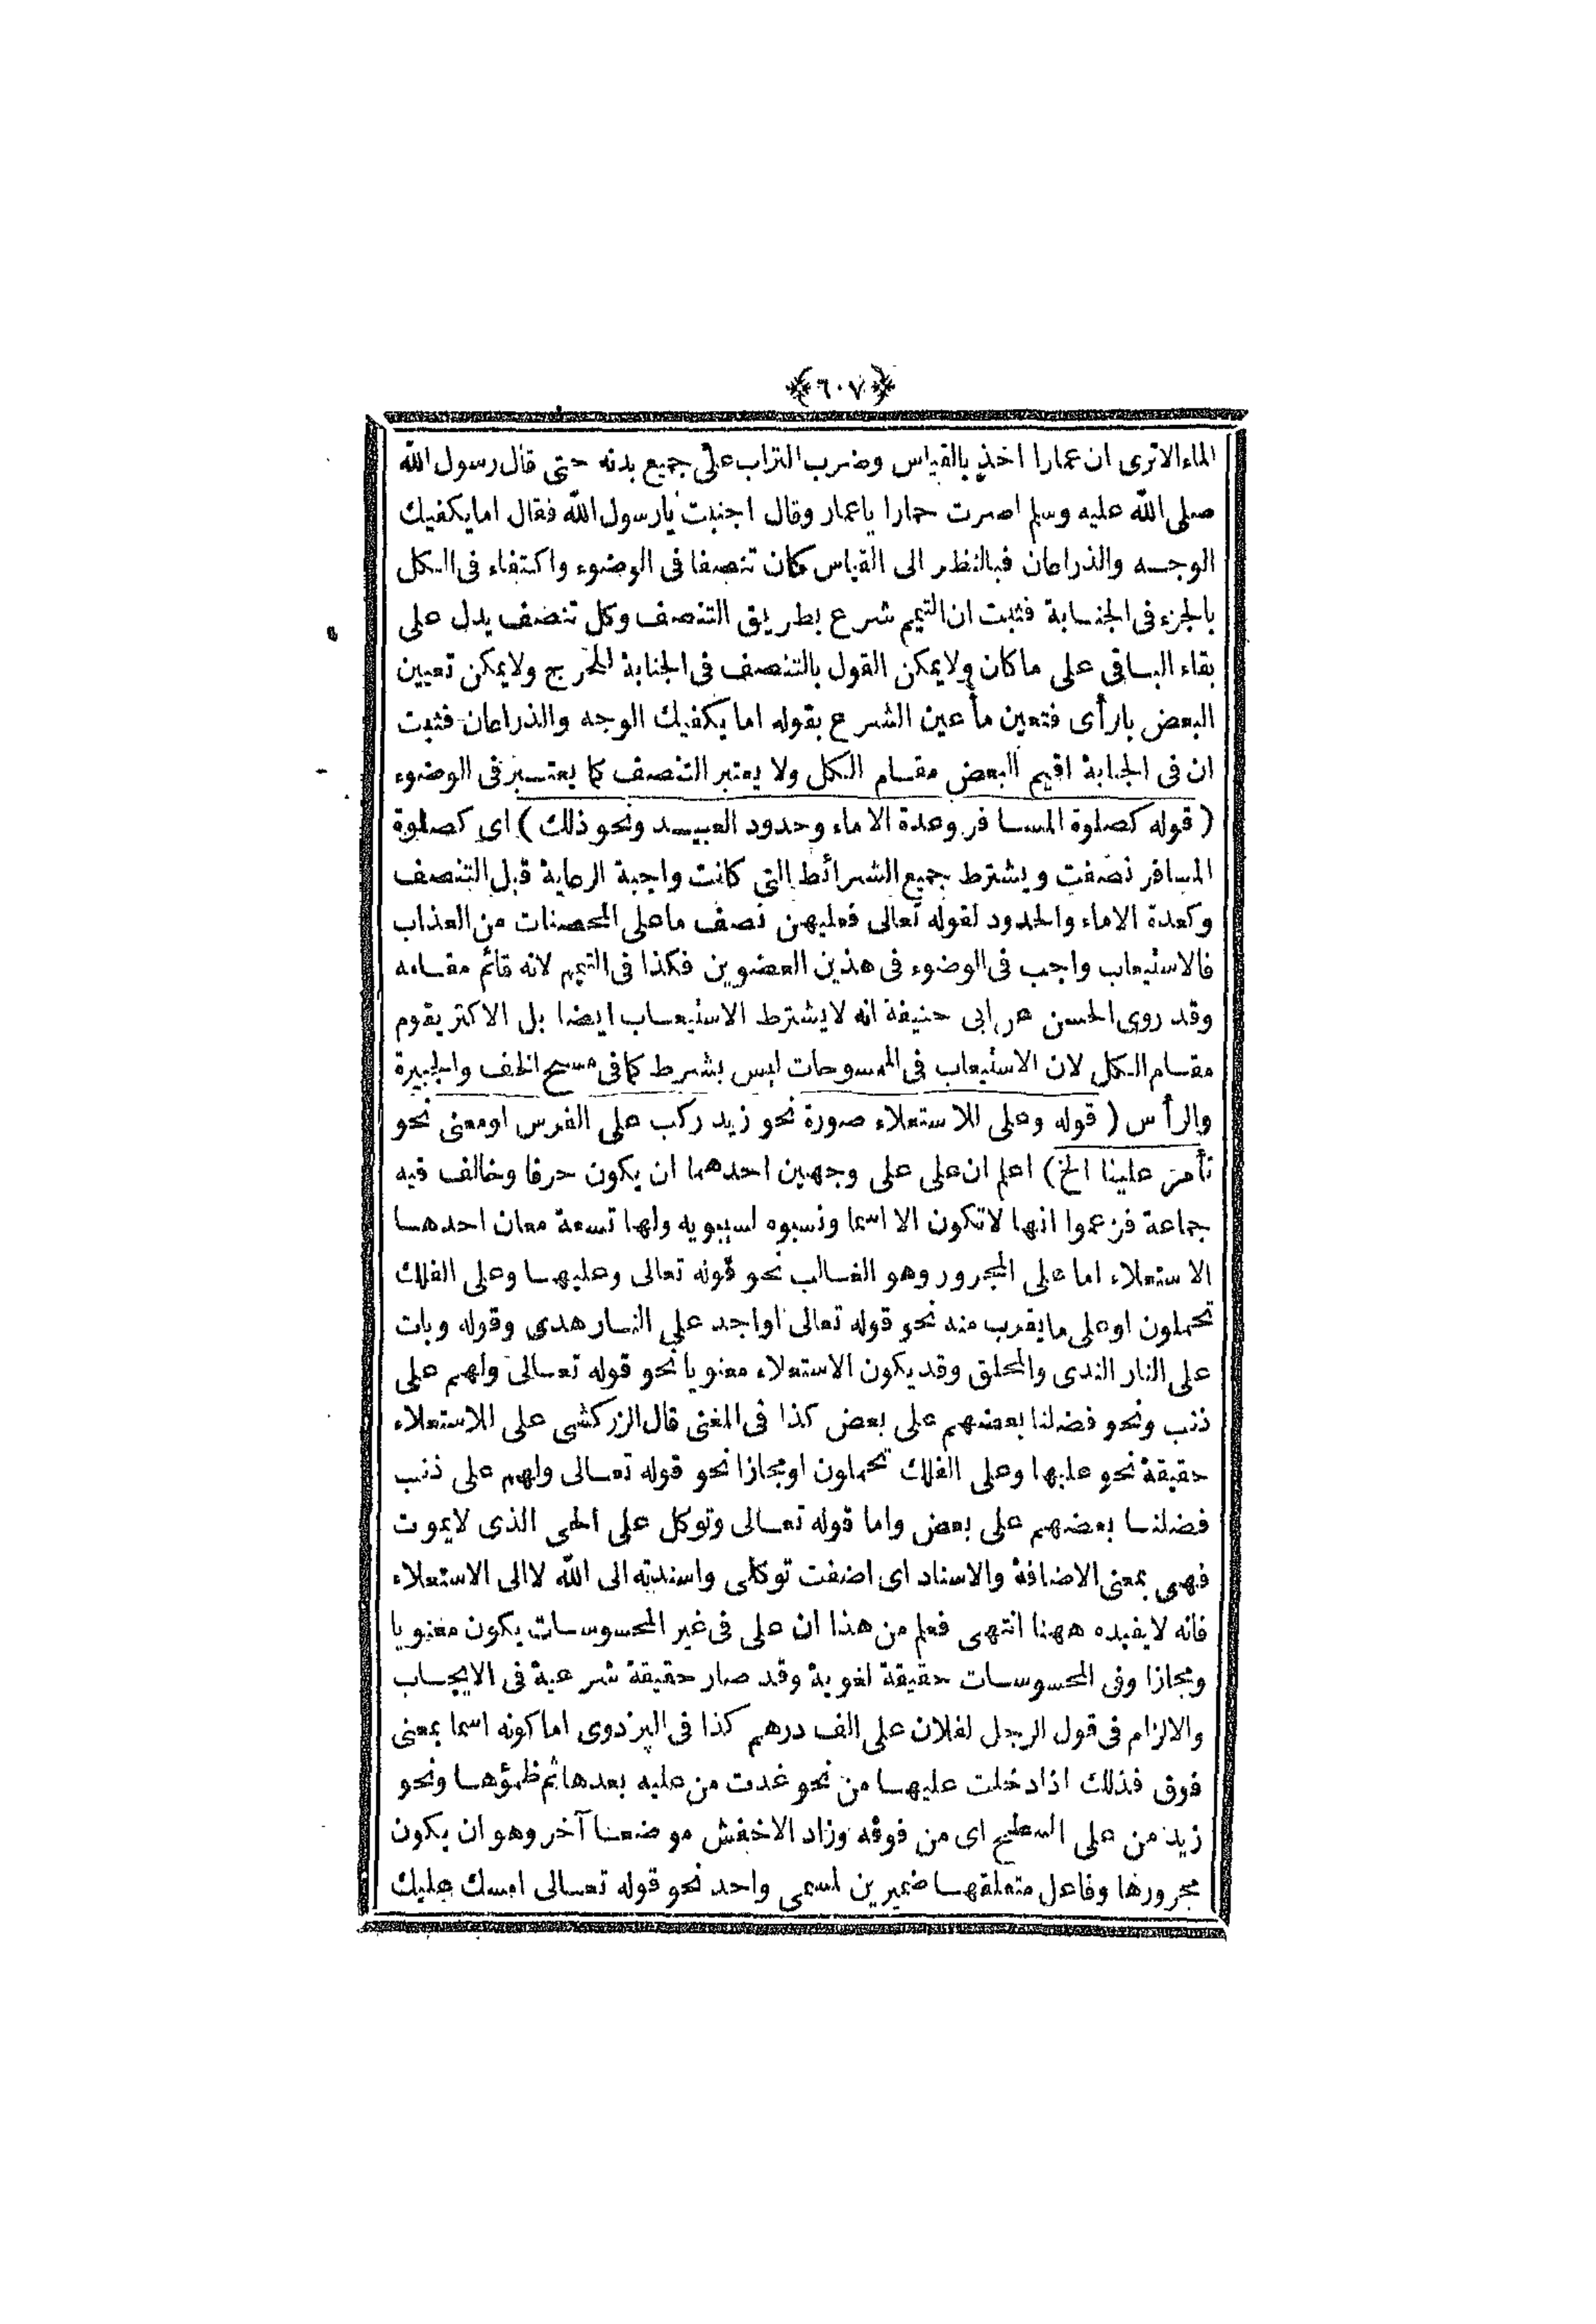 ﴿٦٠٧﴾
الماء الاترى ان عمارا اخذ بالقياس وضرب التراب على جميع بدنه حتى قال رسول الله
صلى الله عليه وسلم اصرت حمارا ياعمار وقال اجنبت يارسول الله فقال امايكفيك
الوجه والذراعان فبالنظر الى القياس كان تنصفا فى الوضوء واكتفاء فى الكل
بالجزء فى الجنابة فثبت ان التيمم شرع بطريق التنصف وكل تنصف يدل على
بقاء الباقى على ماكان ولايمكن القول بالتنصف فى الجنابة للحرج ولايمكن تعيين
البعض بارأى فتعين ما عين الشرع بقوله اما يكفيك الوجه والذراعان فثبت
ان فى الجنابة اقيم البعض مقام الكل ولا يعتبر التنصف كما يعتبر فى الوضوء
( قوله كصلوة المسافر وعدة الاماء وحدود العبيد ونحو ذلك ) اى كصلوة
المسافر نصفت ويشترط جميع الشرائط التى كانت واجبة الرعاية قبل التنصف
وكعدة الاماء والحدود لقوله تعالى فعليهن نصف ماعلى المحصنات من العذاب
فالاستيعاب واجب فى الوضوء فى هذين العضوين فكذا فى التيمم لانه قائم مقامه
وقد روى الحسن عن ابى حنيفة انه لايشترط الاستيعاب ايضا بل الاكثر يقوم
مقام الكل لان الاستيعاب فى الممسوحات ليس بشرط كما فى مسح الخف والجبيرة
والرأس ( قوله وعلى للاستعلاء صورة نحو زيد ركب على الفرس اومعنى نحو
تأمر علينا الخ ) اعلم ان على على وجهين احدهما ان يكون حرفا وخالف فيه
جماعة فزعموا انها لاتكون الا اسما ونسبوه لسيبويه ولها تسعة معان احدها
الاستعلاء اما على المجرور وهو الغالب نحو قوله تعالى وعليها وعلى الفلك
تحملون اوعلى مايقرب منه نحو قوله تعالى اواجد على النار هدى وقوله وبات
على النار الندى والمحلق وقديكون الاستعلاء معنويا نحو قوله تعالى ولهم على
ذنب ونحو فضلنا بعضهم على بعض كذا فى المغنى قال الزركشى على للاستعلاء
حقيقة نحو عليها وعلى الفلك تحملون اومجازا نحو قوله تعالى ولهم على ذنب
فضلنا بعضهم على بعض واما قوله تعالى وتوكل على الحى الذى لايموت
فهى بمعنى الاضافة والاسناد اى اضفت توكلى واسندته الى الله لاالى الاستعلاء
فانه لايفيده ههنا انتهى فعلم من هذا ان على فى غير المحسوسات يكون معنويا
ومجازا وفى المحسوسات حقيقة لغوية وقد صار حقيقة شرعية فى الايجاب
والالزام فى قول الرجل لفلان على الف درهم كذا فى البزدوى اما كونه اسما بمعنى
فوق فذلك اذا دخلت عليها من نحو غدت من عليه بعدهاتم ظمؤها ونحو
زيد من على السطح اى من فوقه وزاد الاخفش موضعا آخر وهو ان يكون
مجرورها وفاعل متعلقها ضميرين لسمى واحد نحو قوله تعالى امسك عليك